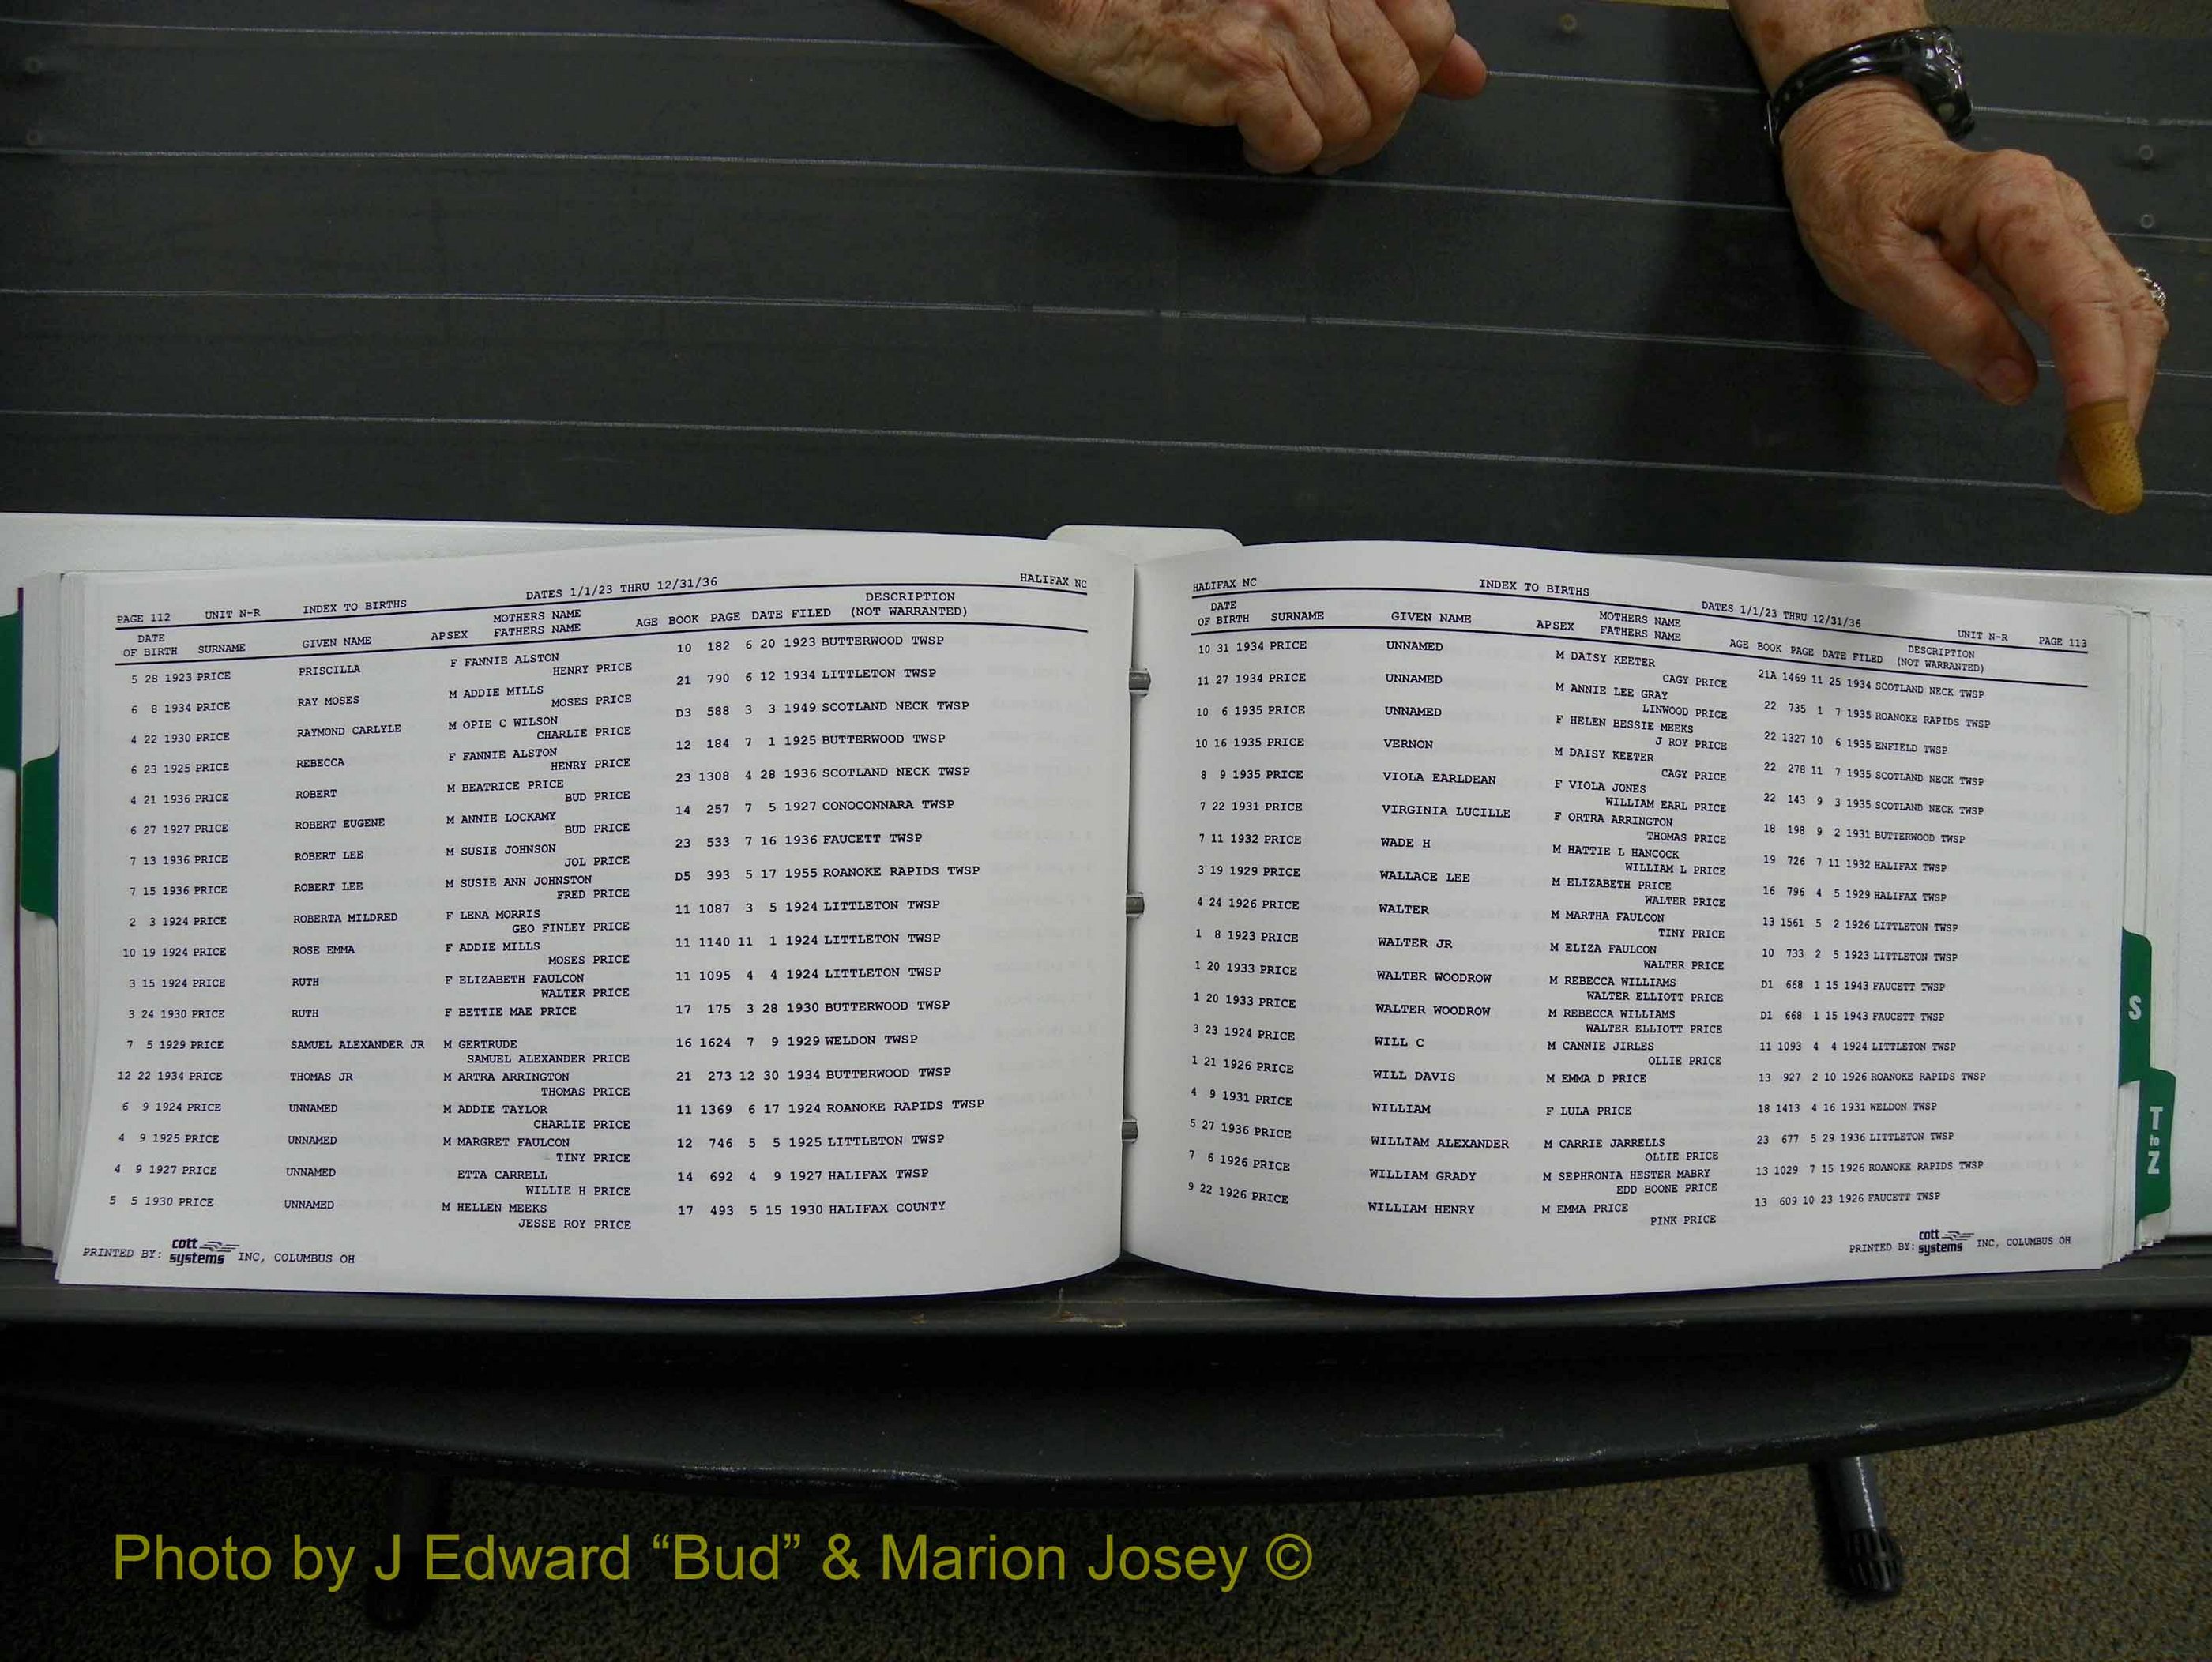 PAGE 112 UNIT N-R INDEX TO BIRTHS DATES 1/1/23 THRU 12/31/36 HALIFAX NC
DATE MOTHERS NAME DESCRIPTION
OF BIRTH SURNAME GIVEN NAME APSEX FATHERS NAME AGE BOOK PAGE DATE FILED (NOT WARRANTED)
5 28 1923 PRICE PRISCILLA F FANNIE ALSTON 10 182 6 20 1923 BUTTERWOOD TWSP
HENRY PRICE
6 8 1934 PRICE RAY MOSES M ADDIE MILLS 21 790 6 12 1934 LITTLETON TWSP
MOSES PRICE
4 22 1930 PRICE RAYMOND CARLYLE M OPIE C WILSON D3 588 3 3 1949 SCOTLAND NECK TWSP
CHARLIE PRICE
6 23 1925 PRICE REBECCA F FANNIE ALSTON 12 184 7 1 1925 BUTTERWOOD TWSP
HENRY PRICE
4 21 1936 PRICE ROBERT M BEATRICE PRICE 23 1308 4 28 1936 SCOTLAND NECK TWSP
BUD PRICE
6 27 1927 PRICE ROBERT EUGENE M ANNIE LOCKAMY 14 257 7 5 1927 CONOCONNARA TWSP
BUD PRICE
7 13 1936 PRICE ROBERT LEE M SUSIE JOHNSON 23 533 7 16 1936 FAUCETT TWSP
JOL PRICE
7 15 1936 PRICE ROBERT LEE M SUSIE ANN JOHNSTON D5 393 5 17 1955 ROANOKE RAPIDS TWSP
FRED PRICE
2 3 1924 PRICE ROBERTA MILDRED F LENA MORRIS 11 1087 3 5 1924 LITTLETON TWSP
GEO FINLEY PRICE
10 19 1924 PRICE ROSE EMMA F ADDIE MILLS 11 1140 11 1 1924 LITTLETON TWSP
MOSES PRICE
3 15 1924 PRICE RUTH F ELIZABETH FAULCON 11 1095 4 4 1924 LITTLETON TWSP
WALTER PRICE
3 24 1930 PRICE RUTH F BETTIE MAE PRICE 17 175 3 28 1930 BUTTERWOOD TWSP
7 5 1929 PRICE SAMUEL ALEXANDER JR M GERTRUDE 16 1624 7 9 1929 WELDON TWSP
SAMUEL ALEXANDER PRICE
12 22 1934 PRICE THOMAS JR M ARTRA ARRINGTON 21 273 12 30 1934 BUTTERWOOD TWSP
THOMAS PRICE
6 9 1924 PRICE UNNAMED M ADDIE TAYLOR 11 1369 6 17 1924 ROANOKE RAPIDS TWSP
CHARLIE PRICE
4 9 1925 PRICE UNNAMED M MARGRET FAULCON 12 746 5 5 1925 LITTLETON TWSP
TINY PRICE
4 9 1927 PRICE UNNAMED ETTA CARRELL 14 692 4 9 1927 HALIFAX TWSP
WILLIE H PRICE
5 5 1930 PRICE UNNAMED M HELLEN MEEKS 17 493 5 15 1930 HALIFAX COUNTY
JESSE ROY PRICE
PRINTED BY: cott systems INC, COLUMBUS OH
HALIFAX NC INDEX TO BIRTHS DATES 1/1/23 THRU 12/31/36 UNIT N-R PAGE 113
DATE MOTHERS NAME DESCRIPTION
OF BIRTH SURNAME GIVEN NAME APSEX FATHERS NAME AGE BOOK PAGE DATE FILED (NOT WARRANTED)
10 31 1934 PRICE UNNAMED M DAISY KEETER 21A 1469 11 25 1934 SCOTLAND NECK TWSP
CAGY PRICE
11 27 1934 PRICE UNNAMED M ANNIE LEE GRAY 22 735 1 7 1935 ROANOKE RAPIDS TWSP
LINWOOD PRICE
10 6 1935 PRICE UNNAMED F HELEN BESSIE MEEKS 22 1327 10 6 1935 ENFIELD TWSP
J ROY PRICE
10 16 1935 PRICE VERNON M DAISY KEETER 22 278 11 7 1935 SCOTLAND NECK TWSP
CAGY PRICE
8 9 1935 PRICE VIOLA EARLDEAN F VIOLA JONES 22 143 9 3 1935 SCOTLAND NECK TWSP
WILLIAM EARL PRICE
7 22 1931 PRICE VIRGINIA LUCILLE F ORTRA ARRINGTON 18 198 9 2 1931 BUTTERWOOD TWSP
THOMAS PRICE
7 11 1932 PRICE WADE H M HATTIE L HANCOCK 19 726 7 11 1932 HALIFAX TWSP
WILLIAM L PRICE
3 19 1929 PRICE WALLACE LEE M ELIZABETH PRICE 16 796 4 5 1929 HALIFAX TWSP
WALTER PRICE
4 24 1926 PRICE WALTER M MARTHA FAULCON 13 1561 5 2 1926 LITTLETON TWSP
TINY PRICE
1 8 1923 PRICE WALTER JR M ELIZA FAULCON 10 733 2 5 1923 LITTLETON TWSP
WALTER PRICE
1 20 1933 PRICE WALTER WOODROW M REBECCA WILLIAMS D1 668 1 15 1943 FAUCETT TWSP
WALTER ELLIOTT PRICE
1 20 1933 PRICE WALTER WOODROW M REBECCA WILLIAMS D1 668 1 15 1943 FAUCETT TWSP
WALTER ELLIOTT PRICE
3 23 1924 PRICE WILL C M CANNIE JIRLES 11 1093 4 4 1924 LITTLETON TWSP
OLLIE PRICE
1 21 1926 PRICE WILL DAVIS M EMMA D PRICE 13 927 2 10 1926 ROANOKE RAPIDS TWSP
4 9 1931 PRICE WILLIAM F LULA PRICE 18 1413 4 16 1931 WELDON TWSP
5 27 1936 PRICE WILLIAM ALEXANDER M CARRIE JARRELLS 23 677 5 29 1936 LITTLETON TWSP
OLLIE PRICE
7 6 1926 PRICE WILLIAM GRADY M SEPHRONIA HESTER MABRY 13 1029 7 15 1926 ROANOKE RAPIDS TWSP
EDD BOONE PRICE
9 22 1926 PRICE WILLIAM HENRY M EMMA PRICE 13 609 10 23 1926 FAUCETT TWSP
PINK PRICE
PRINTED BY: cott systems INC, COLUMBUS OH
S
T
to
Z
Photo by J Edward “Bud” & Marion Josey ©